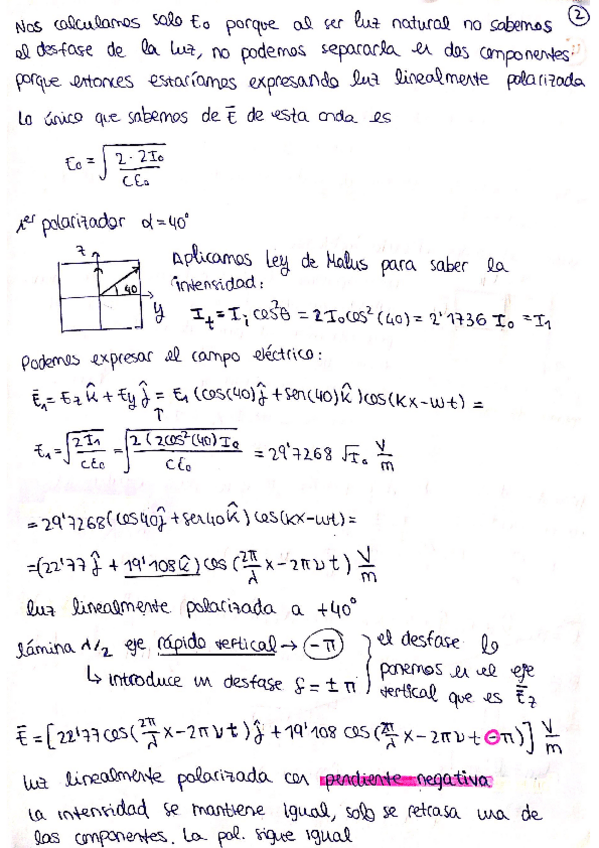 ②
Nos calculamos solo E₀ porque al ser luz natural no sabemos
el desfase de la luz, no podemos separarla en dos componentes
porque entonces estaríamos expresando luz linealmente polarizada
Lo único que sabemos de E̅ de esta onda es
E₀ = √(2·2I₀ / Cε₀)
1er polarizador α=40°
z
40
y
Aplicamos Ley de Malus para saber la
intensidad:
I_t = I_i cos²θ = 2I₀cos²(40) = 2'1736 I₀ = I₁
Podemos expresar el campo eléctrico:
E̅₁ = E_z k̂ + E_y ĵ = E₁ (cos(40)ĵ + sen(40)k̂) cos(kx-wt) =
↑
E₁ = √(2I₁ / Cε₀) = √(2(2cos²(40)I₀ / Cε₀) = 29'7268 √I₀ V/m
= 29'7268 (cos40ĵ + sen40k̂) cos(kx-wt) =
= (22'77 ĵ + 19'108k̂) cos (2π/λ x - 2πνt) V/m
luz linealmente polarizada a +40°
lámina λ/2 eje rápido vertical → -π
↳ introduce un desfase δ = ±π
el desfase lo
ponemos en el eje
vertical que es E̅_z
E̅ = [22'77 cos(2π/λ x - 2πνt)ĵ + 19'108 cos(2π/λ x - 2πνt - π)] V/m
luz linealmente polarizada con pendiente negativa
La intensidad se mantiene igual, solo se retrasa una de
las componentes. La pol. sigue igual